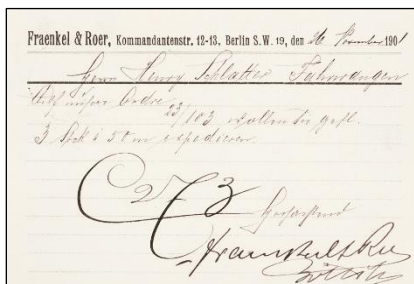 Fraenkel & Roer, Kommandantenstr. 12-13, Berlin S.W. 19, den 26 November 1901
Herrn Henry Schlatter Fahrwangen
Auf unsere Ordre 23/103 wollen Sie gefl.
3 Stck à 50 m expedieren.
C 273
Hochachtend
Fraenkel & Roer